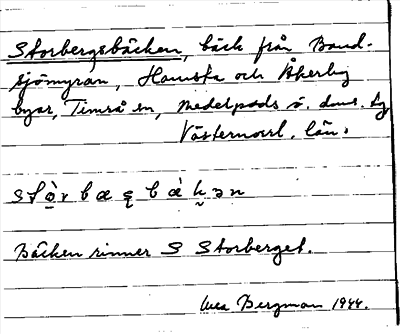 Storbergsbäcken, bäck från Band-
sjömyran, Hamsta och Åkerby
byar, Timrå sn, Medelpads ö. doms. tg
Västernorrl. län.
stò̠rbæȩbàk̬ən
Bäcken rinner S Storberget.
Bergman 1944.